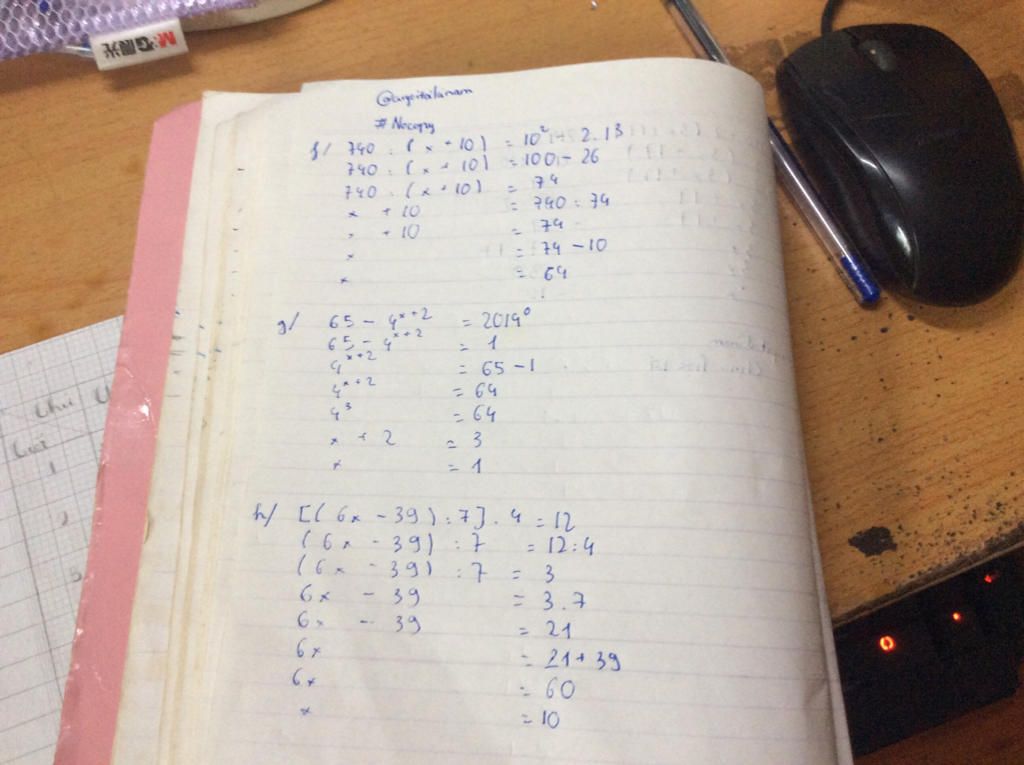 M&G 晨光
#Nocopy
f/ 740 : (x + 10) = 10² - 2.13
740 : (x + 10) = 100 - 26
740 : (x + 10) = 74
x + 10 = 740 : 74
x + 10 = 74
x = 74 - 10
x = 64
g/ 65 - 4ˣ⁺² = 2014⁰
65 - 4ˣ⁺² = 1
4ˣ⁺² = 65 - 1
4ˣ⁺² = 64
4³ = 64
x + 2 = 3
x = 1
h/ [(6x - 39) : 7] . 4 = 12
(6x - 39) : 7 = 12 : 4
(6x - 39) : 7 = 3
6x - 39 = 3 . 7
6x - 39 = 21
6x = 21 + 39
6x = 60
x = 10
1
2
3